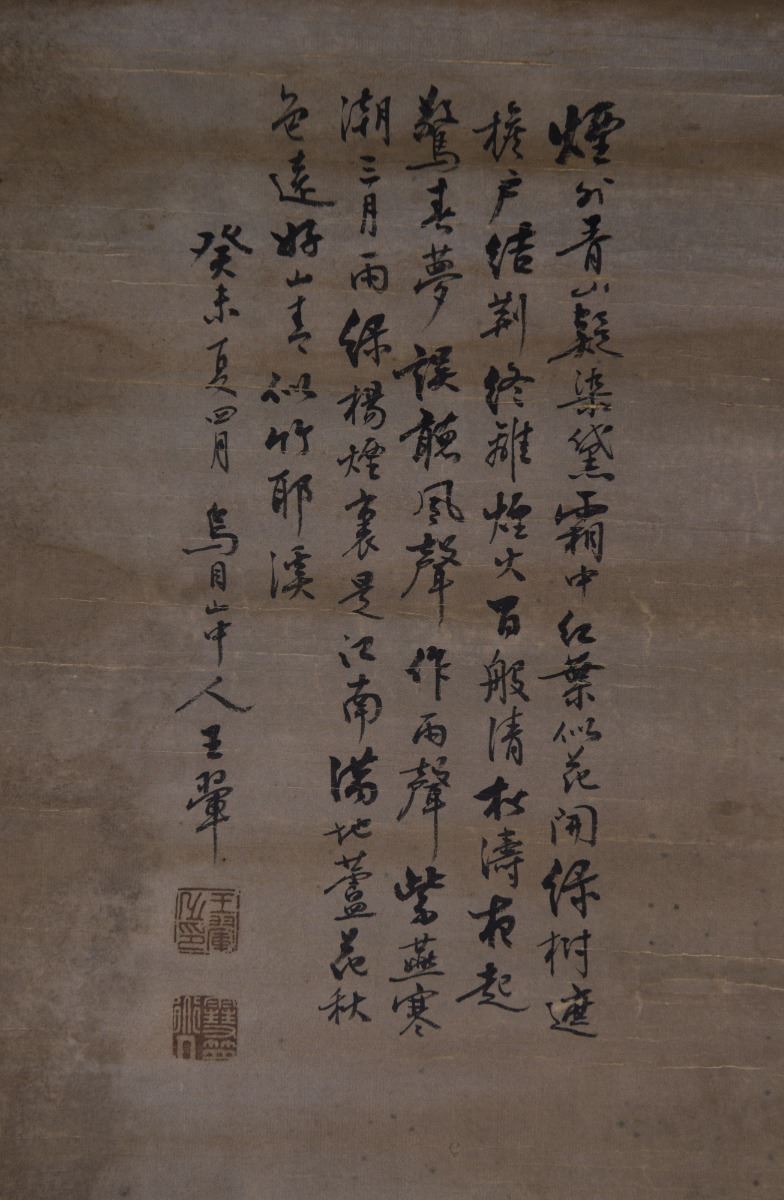 煙外青山疑染黛霜中紅葉似花開綠樹遮
檐戶結荊終離煙火百般清松濤夜起
驚春夢誤聽風聲作雨聲紫燕寒
潮三月雨綠楊煙裏是江南滿地蘆花秋
色遠好山青似竹耶溪
癸未夏四月 烏目山中人王翬
王翬之印